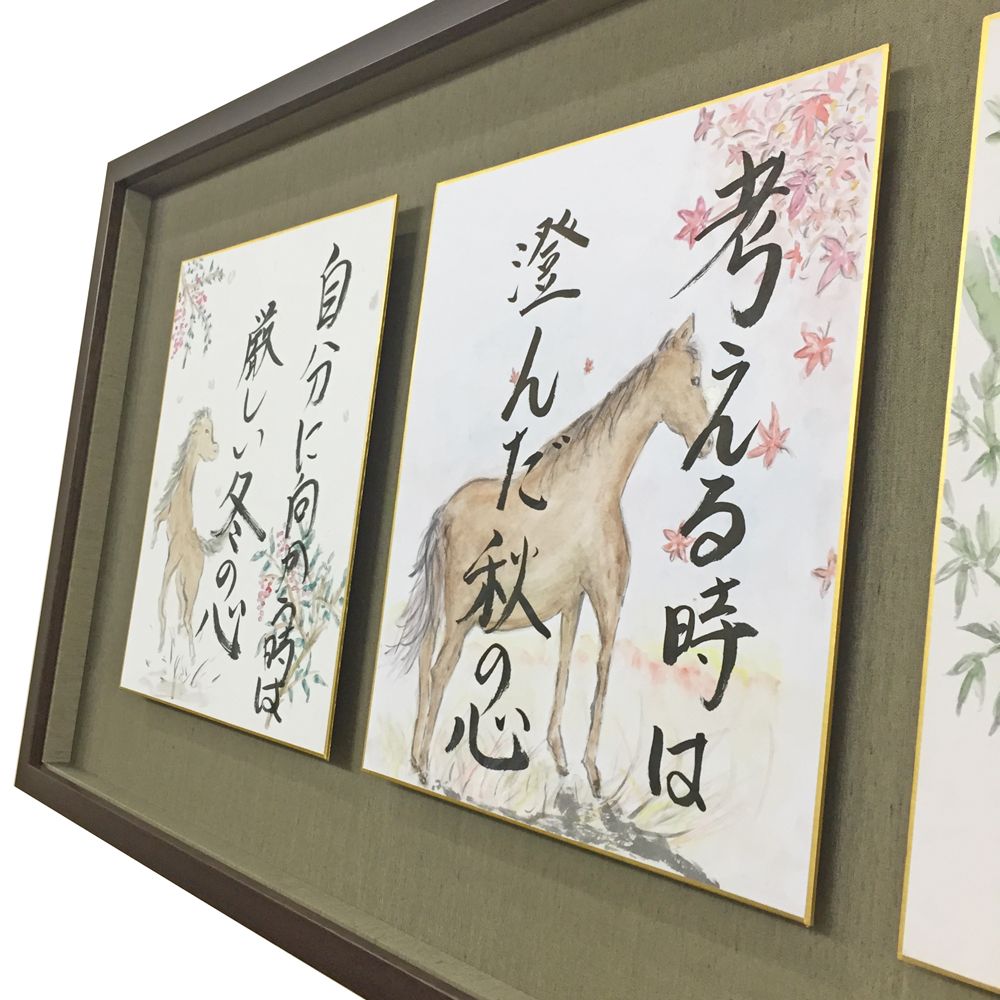 考える時は
澄んだ秋の心
自分に向かう時は
厳しい冬の心